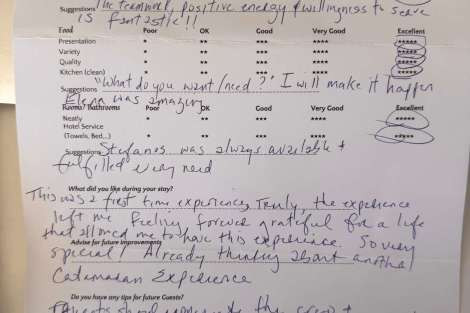 Suggestions The teamwork, positive energy & willingness to serve
is fantastic!!
Food Poor OK Good Very Good Excellent
Presentation * ** *** **** *****
Variety * ** *** **** *****
Quality * ** *** **** *****
Kitchen (clean) * ** *** **** *****
Suggestions "What do you want/need?" I will make it happen
Elena was amazing
Rooms/Bathrooms Poor OK Good Very Good Excellent
Neatly * ** *** **** *****
Hotel Service
(Towels, Bed,..) * ** *** **** *****
Suggestions Stefanos was always available +
fulfilled every need
What did you like during your stay?
This was a first time experience, Truly, the experience
left me feeling forever grateful for a life
that allowed me to have this experience. So very
Advise for future improvements
special! Already thinking about another
Catamaran Experience
Do you have any tips for future Guests?
the crew +